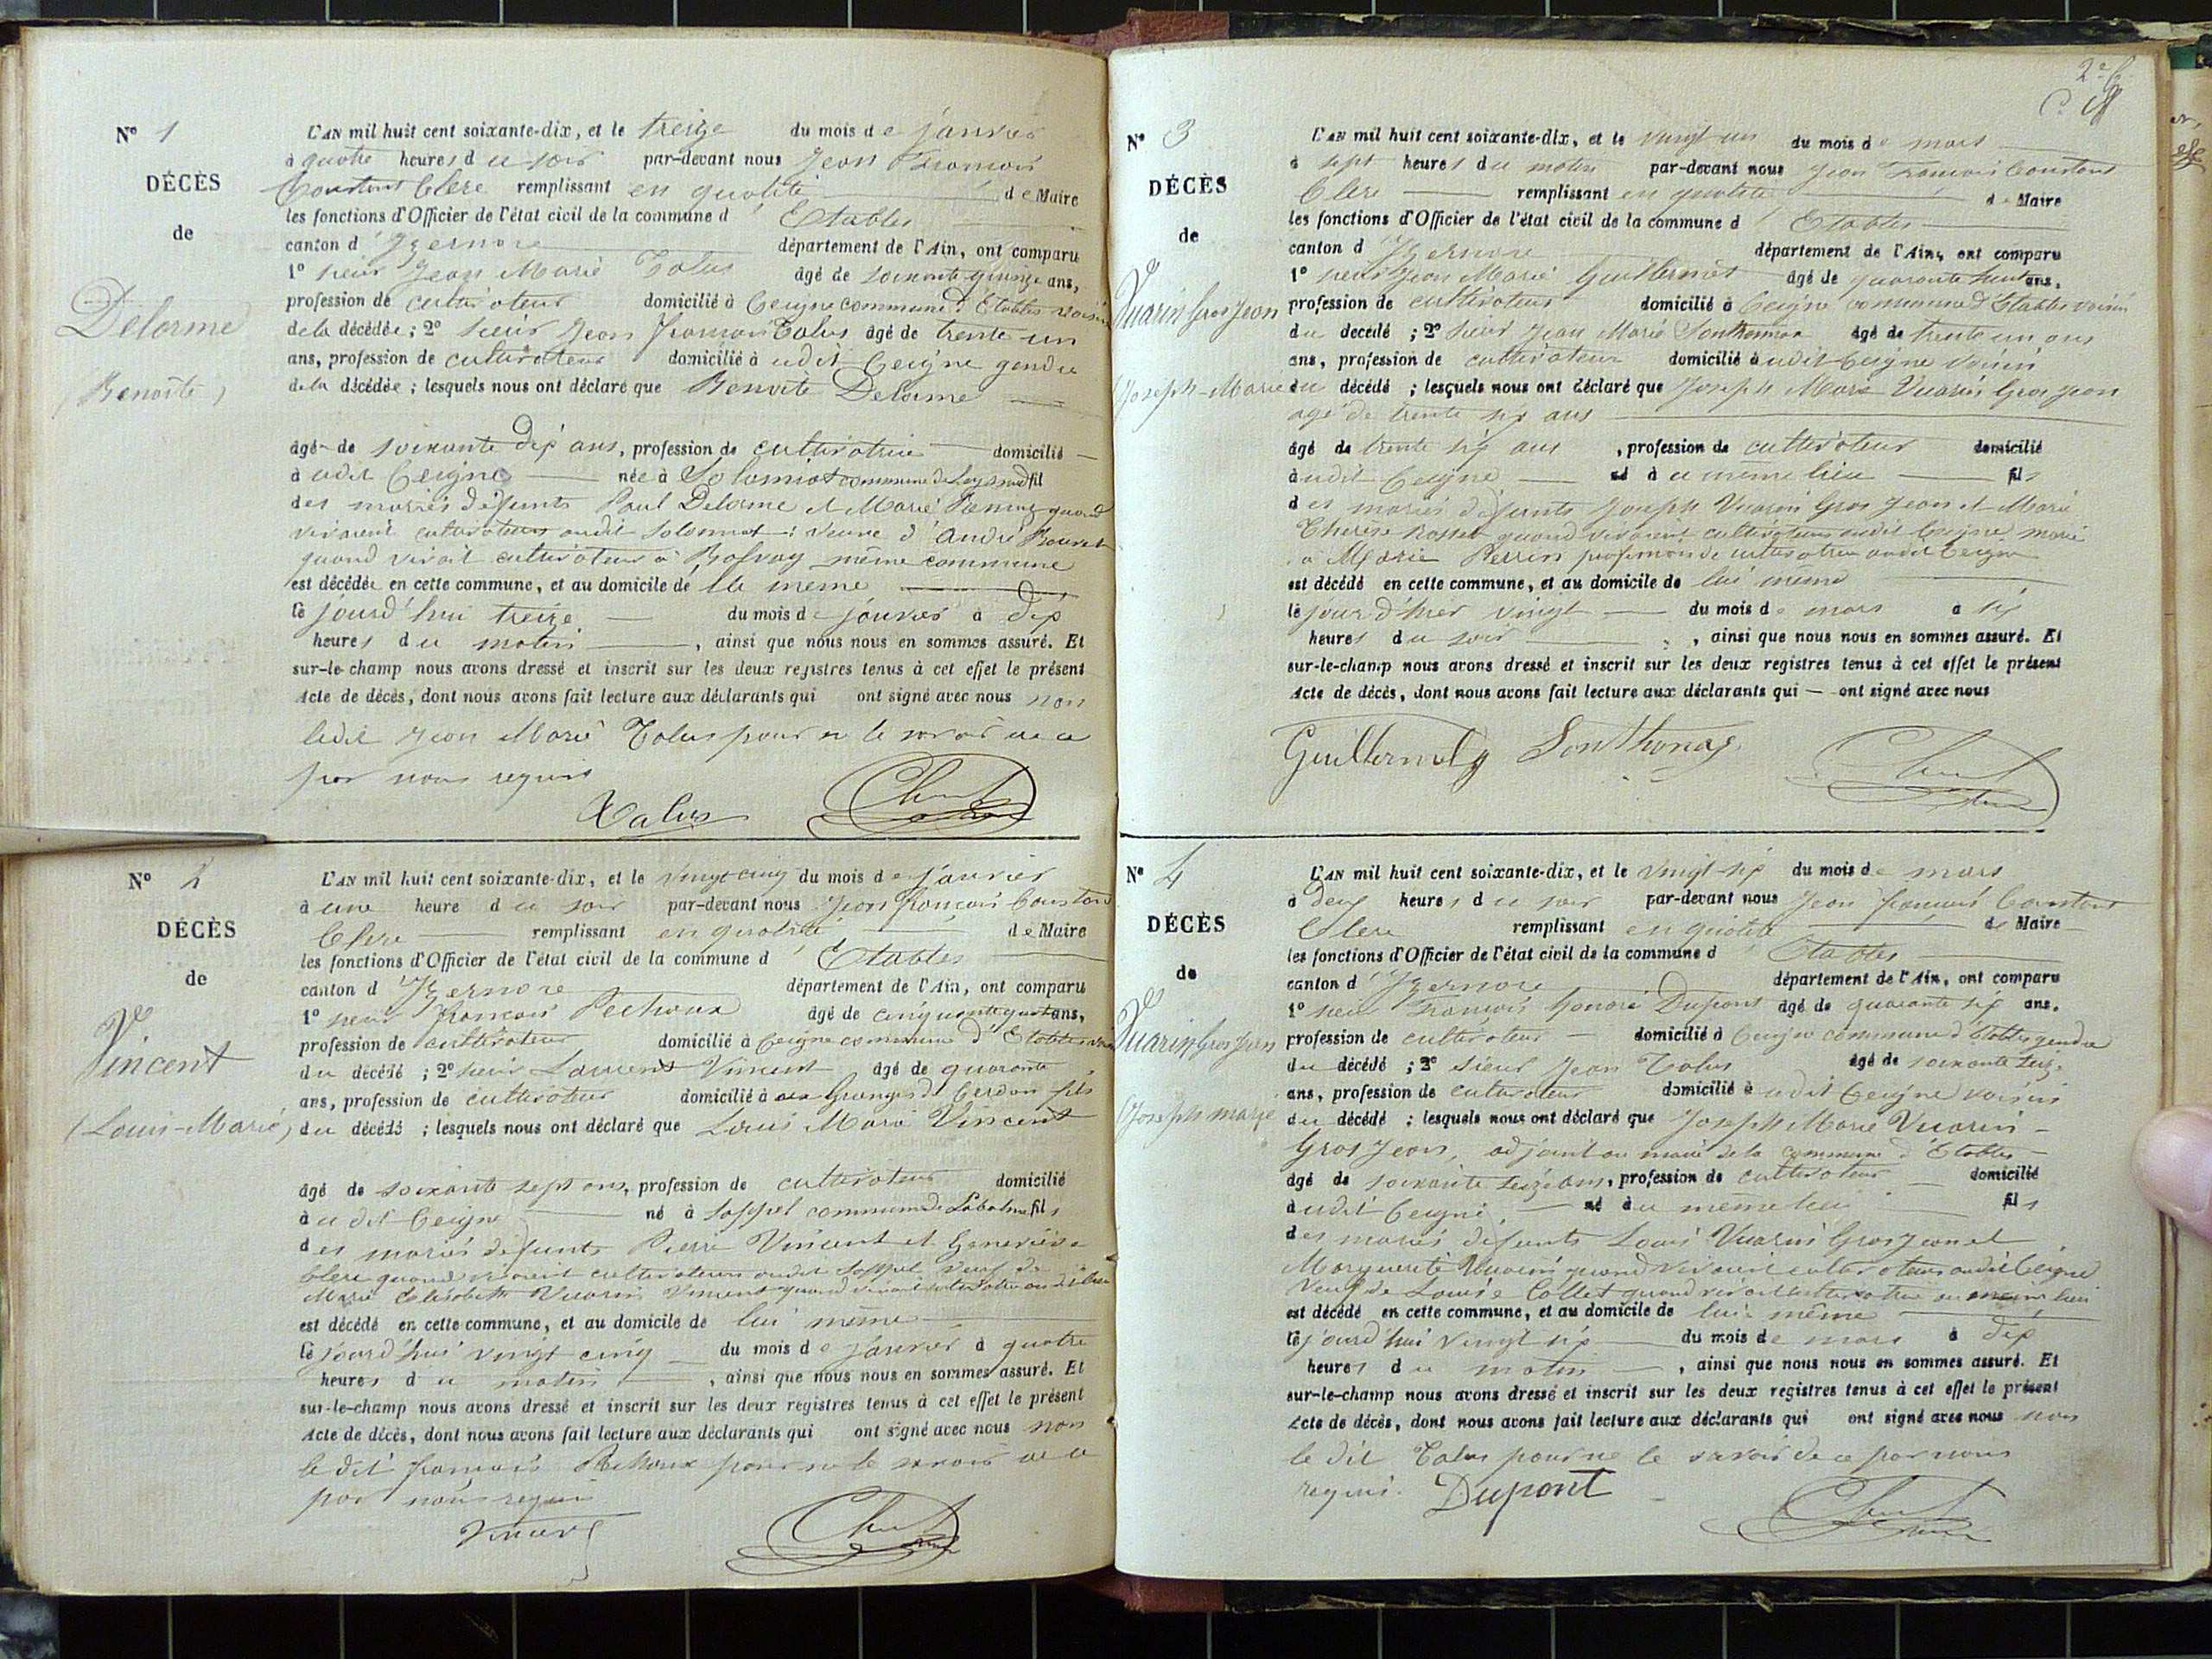 N° 1
DÉCÈS
de
Delorme
(Benoîte)
L'AN mil huit cent soixante-dix, et le treize du mois de janvier
à quatre heures du soir par-devant nous Jean François
Constant Clerc remplissant en qualité de Maire
les fonctions d'Officier de l'état civil de la commune d'Etables
canton d'Izernore département de l'Ain, ont comparu
1° sieur Jean Marie Talus âgé de soixante quinze ans,
profession de cultivateur domicilié à Ceigne commune d'Etables voisin
de la décédée ; 2° sieur Jean françois Talus âgé de trente un
ans, profession de cultivateur domicilié audit Ceigne gendre
de la décédée ; lesquels nous ont déclaré que Benoite Delorme
âgé de soixante dix ans, profession de cultivatrice domicilié
à udit Ceigne née à Solomiat commune de Leyssard fil
des mariés défunts Paul Delorme et Marie quand
vivaient cultivateurs audit Solomiat ; veuve d'André Bouvet
quand vivait cultivateur à Balvay même commune
est décédée en cette commune, et au domicile de elle même
le jourd'hui treize du mois de janvier à dix
heures du matin, ainsi que nous nous en sommes assuré. Et
sur-le-champ nous avons dressé et inscrit sur les deux registres tenus à cet effet le présent
Acte de décès, dont nous avons fait lecture aux déclarants qui ont signé avec nous non
ledit Jean Marie Talus pour ne le savoir de ce
par nous requis
Talus Clerc
N° 2
DÉCÈS
de
Vincent
(Louis-Marie)
L'AN mil huit cent soixante-dix, et le vingt cinq du mois de janvier
à une heure du soir par-devant nous Jean françois Constant
Clerc remplissant en qualité de Maire
les fonctions d'Officier de l'état civil de la commune d'Etables
canton d'Izernore département de l'Ain, ont comparu
1° sieur françois Pechoux âgé de cinquante quatre ans,
profession de cultivateur domicilié à Ceigne commune d'Etables voisin
du décédé ; 2° sieur Laurent Vincent âgé de quarante
ans, profession de cultivateur domicilié à aux Granges de Cerdon fils
du décédé ; lesquels nous ont déclaré que Louis Marie Vincent
âgé de soixante sept ans, profession de cultivateur domicilié
à udit Ceigne né à Soppel commune de Labalme fils
des mariés défunts Pierre Vincent et Geneviève
Clerc quand vivaient cultivateurs audit Soppel veuf de
Marie Elisabeth Vuarin Vincent quand vivait cultivatrice audit lieu
est décédé en cette commune, et au domicile de lui même
le jourd'hui vingt cinq du mois de janvier à quatre
heures du matin, ainsi que nous nous en sommes assuré. Et
sur-le-champ nous avons dressé et inscrit sur les deux registres tenus à cet effet le présent
Acte de décès, dont nous avons fait lecture aux déclarants qui ont signé avec nous non
le dit françois Pechoux pour ne le savoir de ce
par nous requis
Vincent Clerc
N° 3
DÉCÈS
de
Vuarin Gros Jean
(Joseph-Marie
L'AN mil huit cent soixante-dix, et le vingt un du mois de mars
à sept heures du matin par-devant nous Jean François Constant
Clerc remplissant en qualité de Maire
les fonctions d'Officier de l'état civil de la commune d'Etables
canton d'Izernore département de l'Ain, ont comparu
1° sieur Jean Marie Guillermet âgé de quarante huit ans,
profession de cultivateur domicilié à Ceigne commune d'Etables voisin
du décédé ; 2° sieur Jean Marie Sonthonnax âgé de trente un ans
ans, profession de cultivateur domicilié audit Ceigne voisin
du décédé ; lesquels nous ont déclaré que Joseph Marie Vuarin Gros jean
agé de trente six ans
âgé de trente six ans, profession de cultivateur domicilié
à udit Ceigne né à u même lieu fils
des mariés défunts Joseph Vuarin Gros Jean et Marie
Thérèse Rosset quand vivaient cultivateurs audit Ceigne marié
à Marie Perrin profession de cultivatrice audit Ceigne
est décédé en cette commune, et au domicile de lui même
le jour d'hier vingt du mois de mars à six
heures du soir, ainsi que nous nous en sommes assuré. Et
sur-le-champ nous avons dressé et inscrit sur les deux registres tenus à cet effet le présent
Acte de décès, dont nous avons fait lecture aux déclarants qui — ont signé avec nous
Sonthonax Clerc
N° 4
DÉCÈS
de
Vuarin Gros Jean
(Joseph marie
L'AN mil huit cent soixante-dix, et le vingt six du mois de mars
à deux heures du soir par-devant nous Jean françois Constant
Clerc remplissant en qualité de Maire
les fonctions d'Officier de l'état civil de la commune d'Etables
canton d'Izernore département de l'Ain, ont comparu
1° sieur François honoré Dupont âgé de quarante six ans,
profession de cultivateur domicilié à Ceigne commune d'Etables gendre
du décédé ; 2° sieur Jean Talus âgé de soixante seize
ans, profession de cultivateur domicilié à udit Ceigne voisin
du décédé ; lesquels nous ont déclaré que Joseph Marie Vuarin
Gros Jean, adjoint au maire de la commune d'Etables
âgé de soixante seize ans, profession de cultivateur domicilié
à udit Ceigne né à u même lieu fils
des mariés défunts Louis Vuarin Gros Jean et
Marguerite Vuarin quand vivaient cultivateurs audit Ceigne
Veuf de Louise Collet quand vivait cultivatrice au même lieu
est décédé en cette commune, et au domicile de lui même
le jourd'hui vingt six du mois de mars à dix
heures du matin, ainsi que nous nous en sommes assuré. Et
sur-le-champ nous avons dressé et inscrit sur les deux registres tenus à cet effet le présent
Acte de décès, dont nous avons fait lecture aux déclarants qui ont signé avec nous non
le dit Talus pour ne le savoir de ce par nous
requis. Dupont Clerc